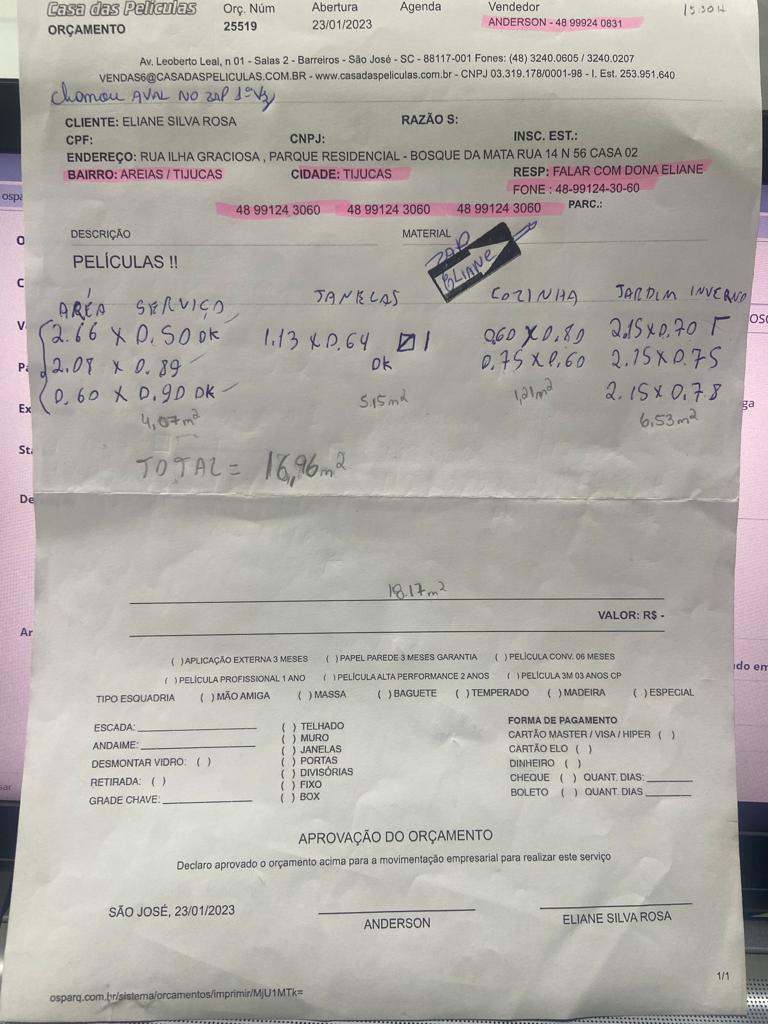 Casa das Películas
ORÇAMENTO
Orç. Núm
25519
Abertura
23/01/2023
Agenda
Vendedor
ANDERSON - 48 99924 0831
15:30H
Av. Leoberto Leal, n 01 - Salas 2 - Barreiros - São José - SC - 88117-001 Fones: (48) 3240.0605 / 3240.0207
VENDAS6@CASADASPELICULAS.COM.BR - www.casadaspeliculas.com.br - CNPJ 03.319.178/0001-98 - I. Est. 253.951.640
chamou AVAL NO ZAP
CLIENTE: ELIANE SILVA ROSA RAZÃO S:
CPF: CNPJ: INSC. EST.:
ENDEREÇO: RUA ILHA GRACIOSA , PARQUE RESIDENCIAL - BOSQUE DA MATA RUA 14 N 56 CASA 02
BAIRRO: AREIAS / TIJUCAS CIDADE: TIJUCAS RESP: FALAR COM DONA ELIANE
FONE : 48-99124-30-60
48 99124 3060 48 99124 3060 48 99124 3060 PARC.:
DESCRIÇÃO MATERIAL
ZAP
ELIANE
PELÍCULAS !!
ÁREA SERVIÇO JANELAS COZINHA JARDIM INVERNO
2.66 X 0.50 OK 1.13 X 0.64 1 0,60 X 0.80 2.15 X 0.70
2.08 X 0.89 OK 0.75 X 0.60 2.15 X 0.75
0.60 X 0.90 OK 2.15 X 0.78
4,07m² 5,15m² 1,21m² 6,53m²
TOTAL = 16,96m²
18.17m²
VALOR: R$ -
( ) APLICAÇÃO EXTERNA 3 MESES ( ) PAPEL PAREDE 3 MESES GARANTIA ( ) PELÍCULA CONV. 06 MESES
( ) PELÍCULA PROFISSIONAL 1 ANO ( ) PELÍCULA ALTA PERFORMANCE 2 ANOS ( ) PELÍCULA 3M 03 ANOS CP
TIPO ESQUADRIA ( ) MÃO AMIGA ( ) MASSA ( ) BAGUETE ( ) TEMPERADO ( ) MADEIRA ( ) ESPECIAL
ESCADA:
ANDAIME:
DESMONTAR VIDRO: ( )
RETIRADA: ( )
GRADE CHAVE:
( ) TELHADO
( ) MURO
( ) JANELAS
( ) PORTAS
( ) DIVISÓRIAS
( ) FIXO
( ) BOX
FORMA DE PAGAMENTO
CARTÃO MASTER / VISA / HIPER ( )
CARTÃO ELO ( )
DINHEIRO ( )
CHEQUE ( ) QUANT. DIAS:
BOLETO ( ) QUANT. DIAS
APROVAÇÃO DO ORÇAMENTO
Declaro aprovado o orçamento acima para a movimentação empresarial para realizar este serviço
SÃO JOSÉ, 23/01/2023
ANDERSON
ELIANE SILVA ROSA
1/1
osparq.com.br/sistema/orcamentos/imprimir/MjU1MTk=